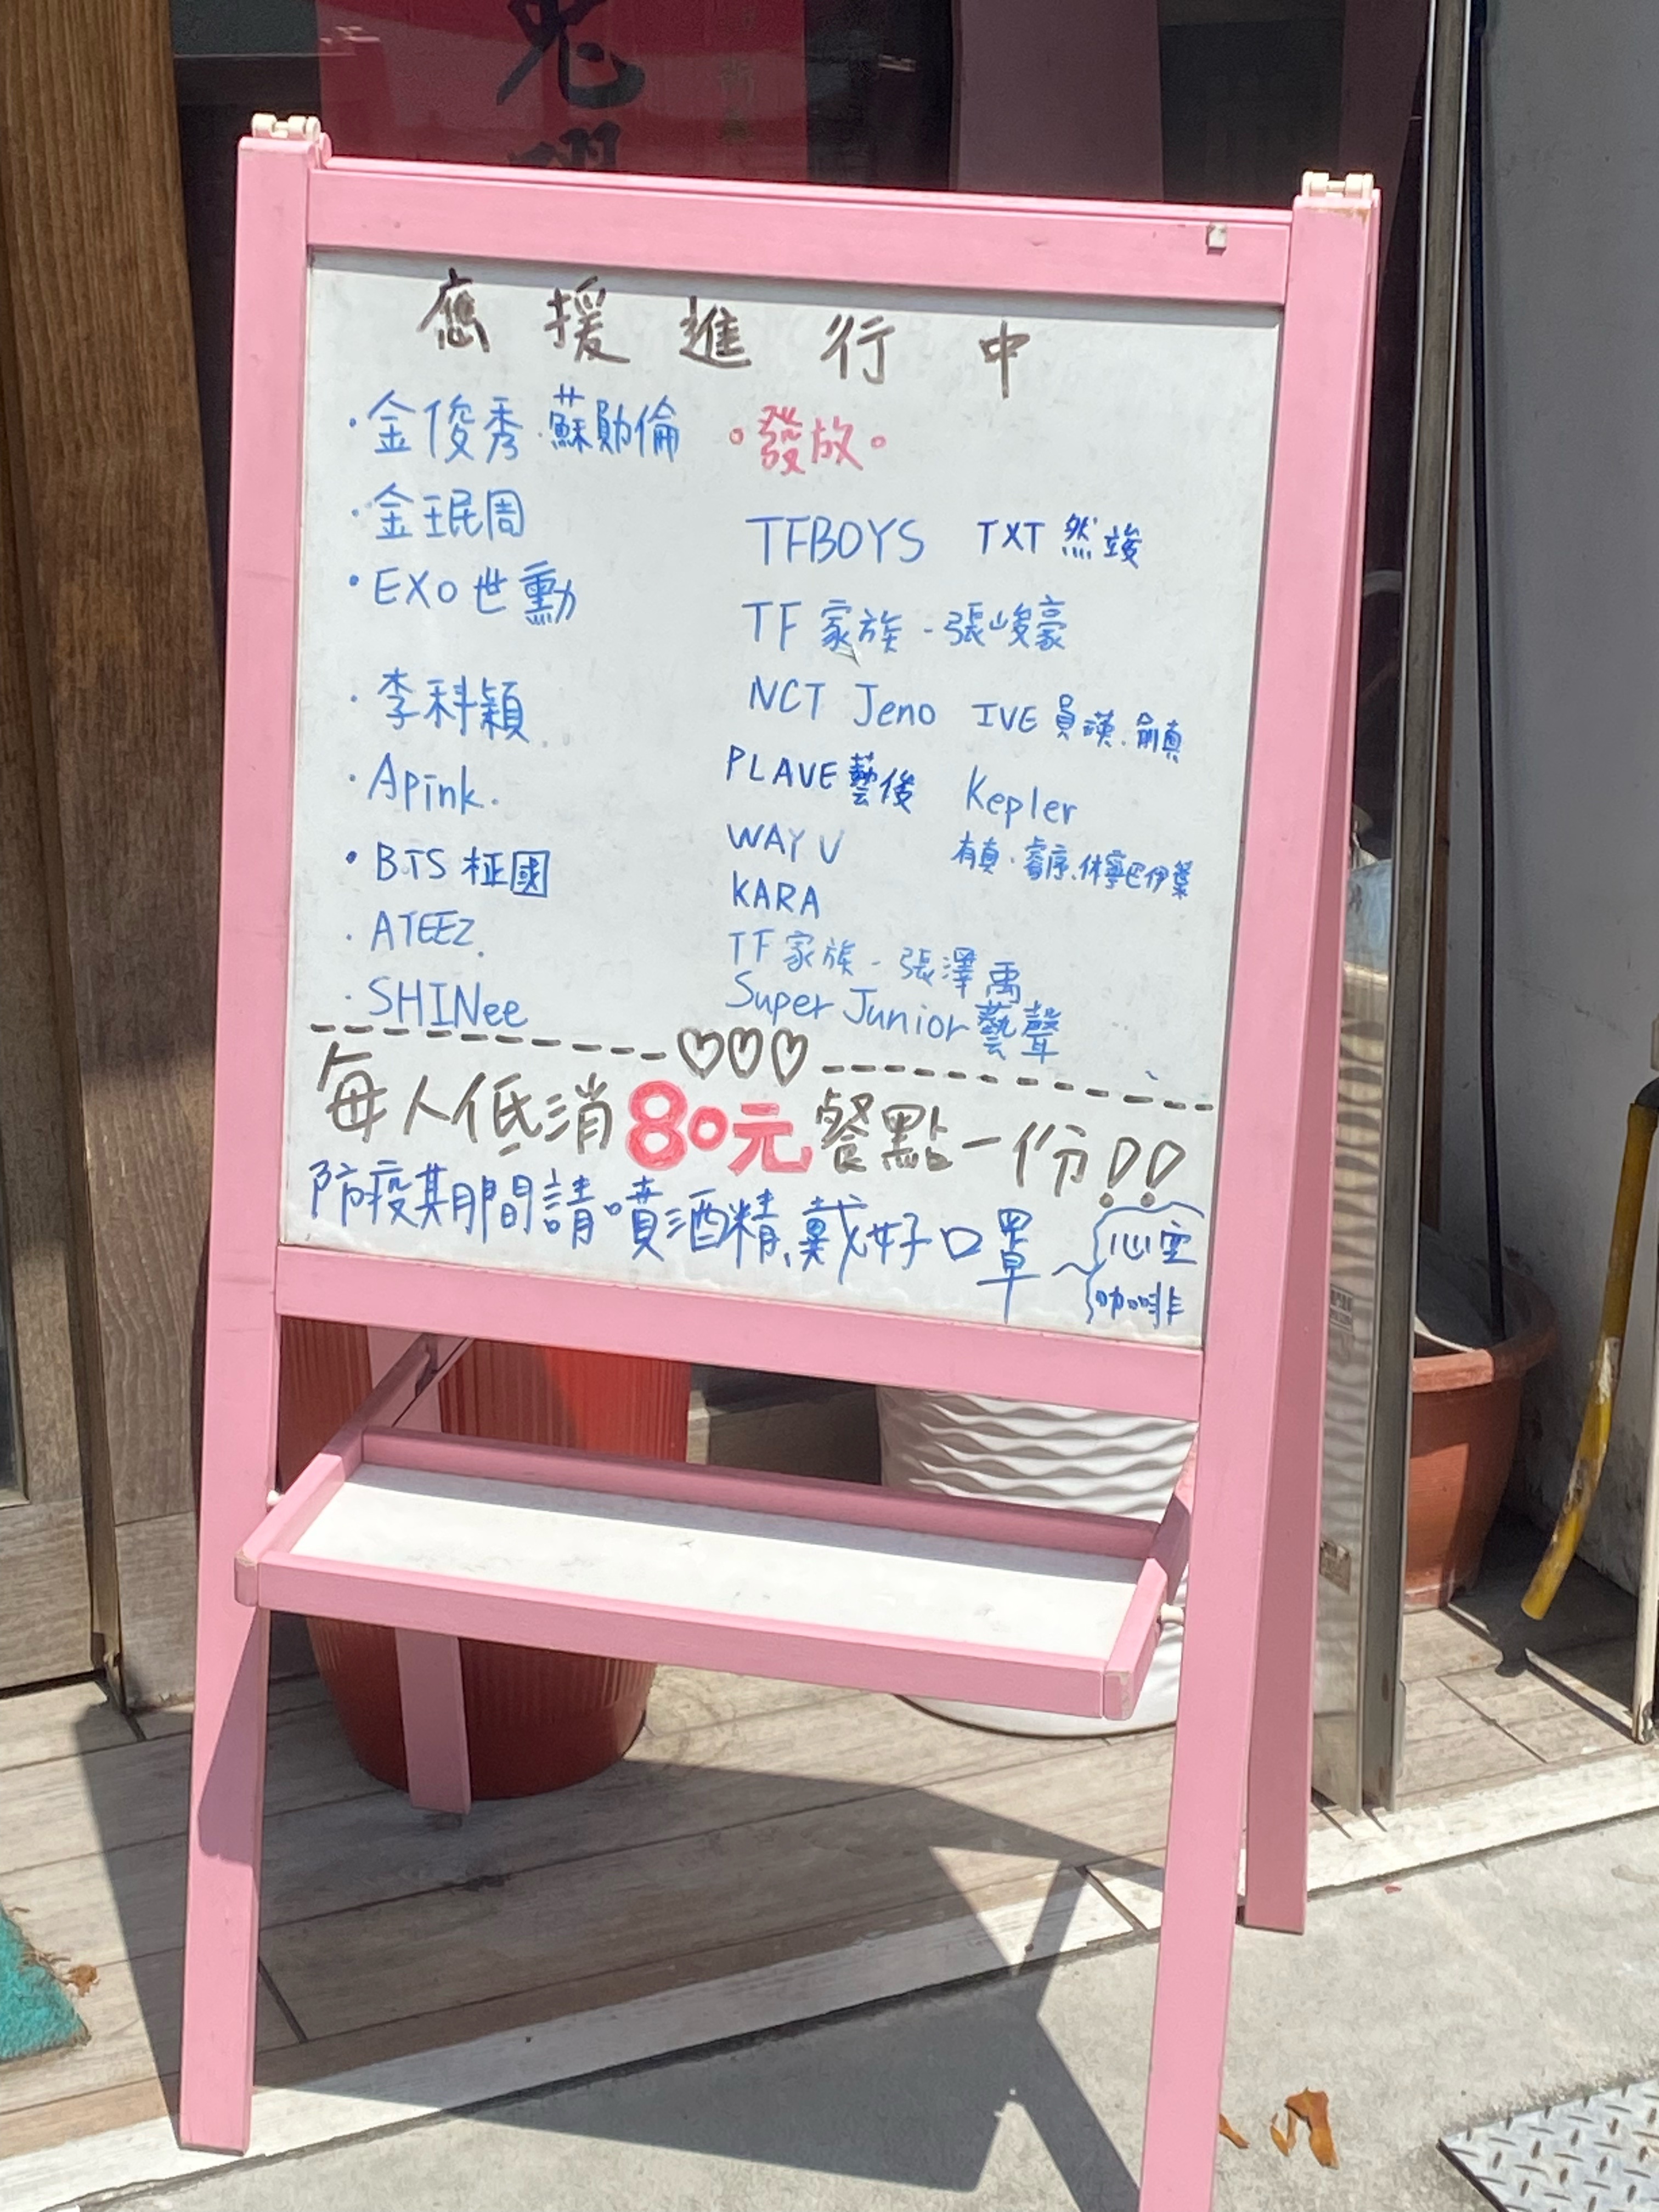 應援進行中
·金俊秀·蘇勛倫
·金珉周
·EXO世勳
·李科穎
·Apink.
·BTS柾國
·ATEEZ.
·SHINee
。發放。
TFBOYS TXT 然竣
TF家族-張峻豪
NCT Jeno IVE 員瑛.俞真
PLAVE 藝俊 Kepler
WAYV 有真.睿序.休寧巴伊葉
KARA
TF家族-張澤禹
Super Junior藝聲
每人低消80元餐點一份!!
防疫期間請噴酒精,戴好口罩~
心空
咖啡